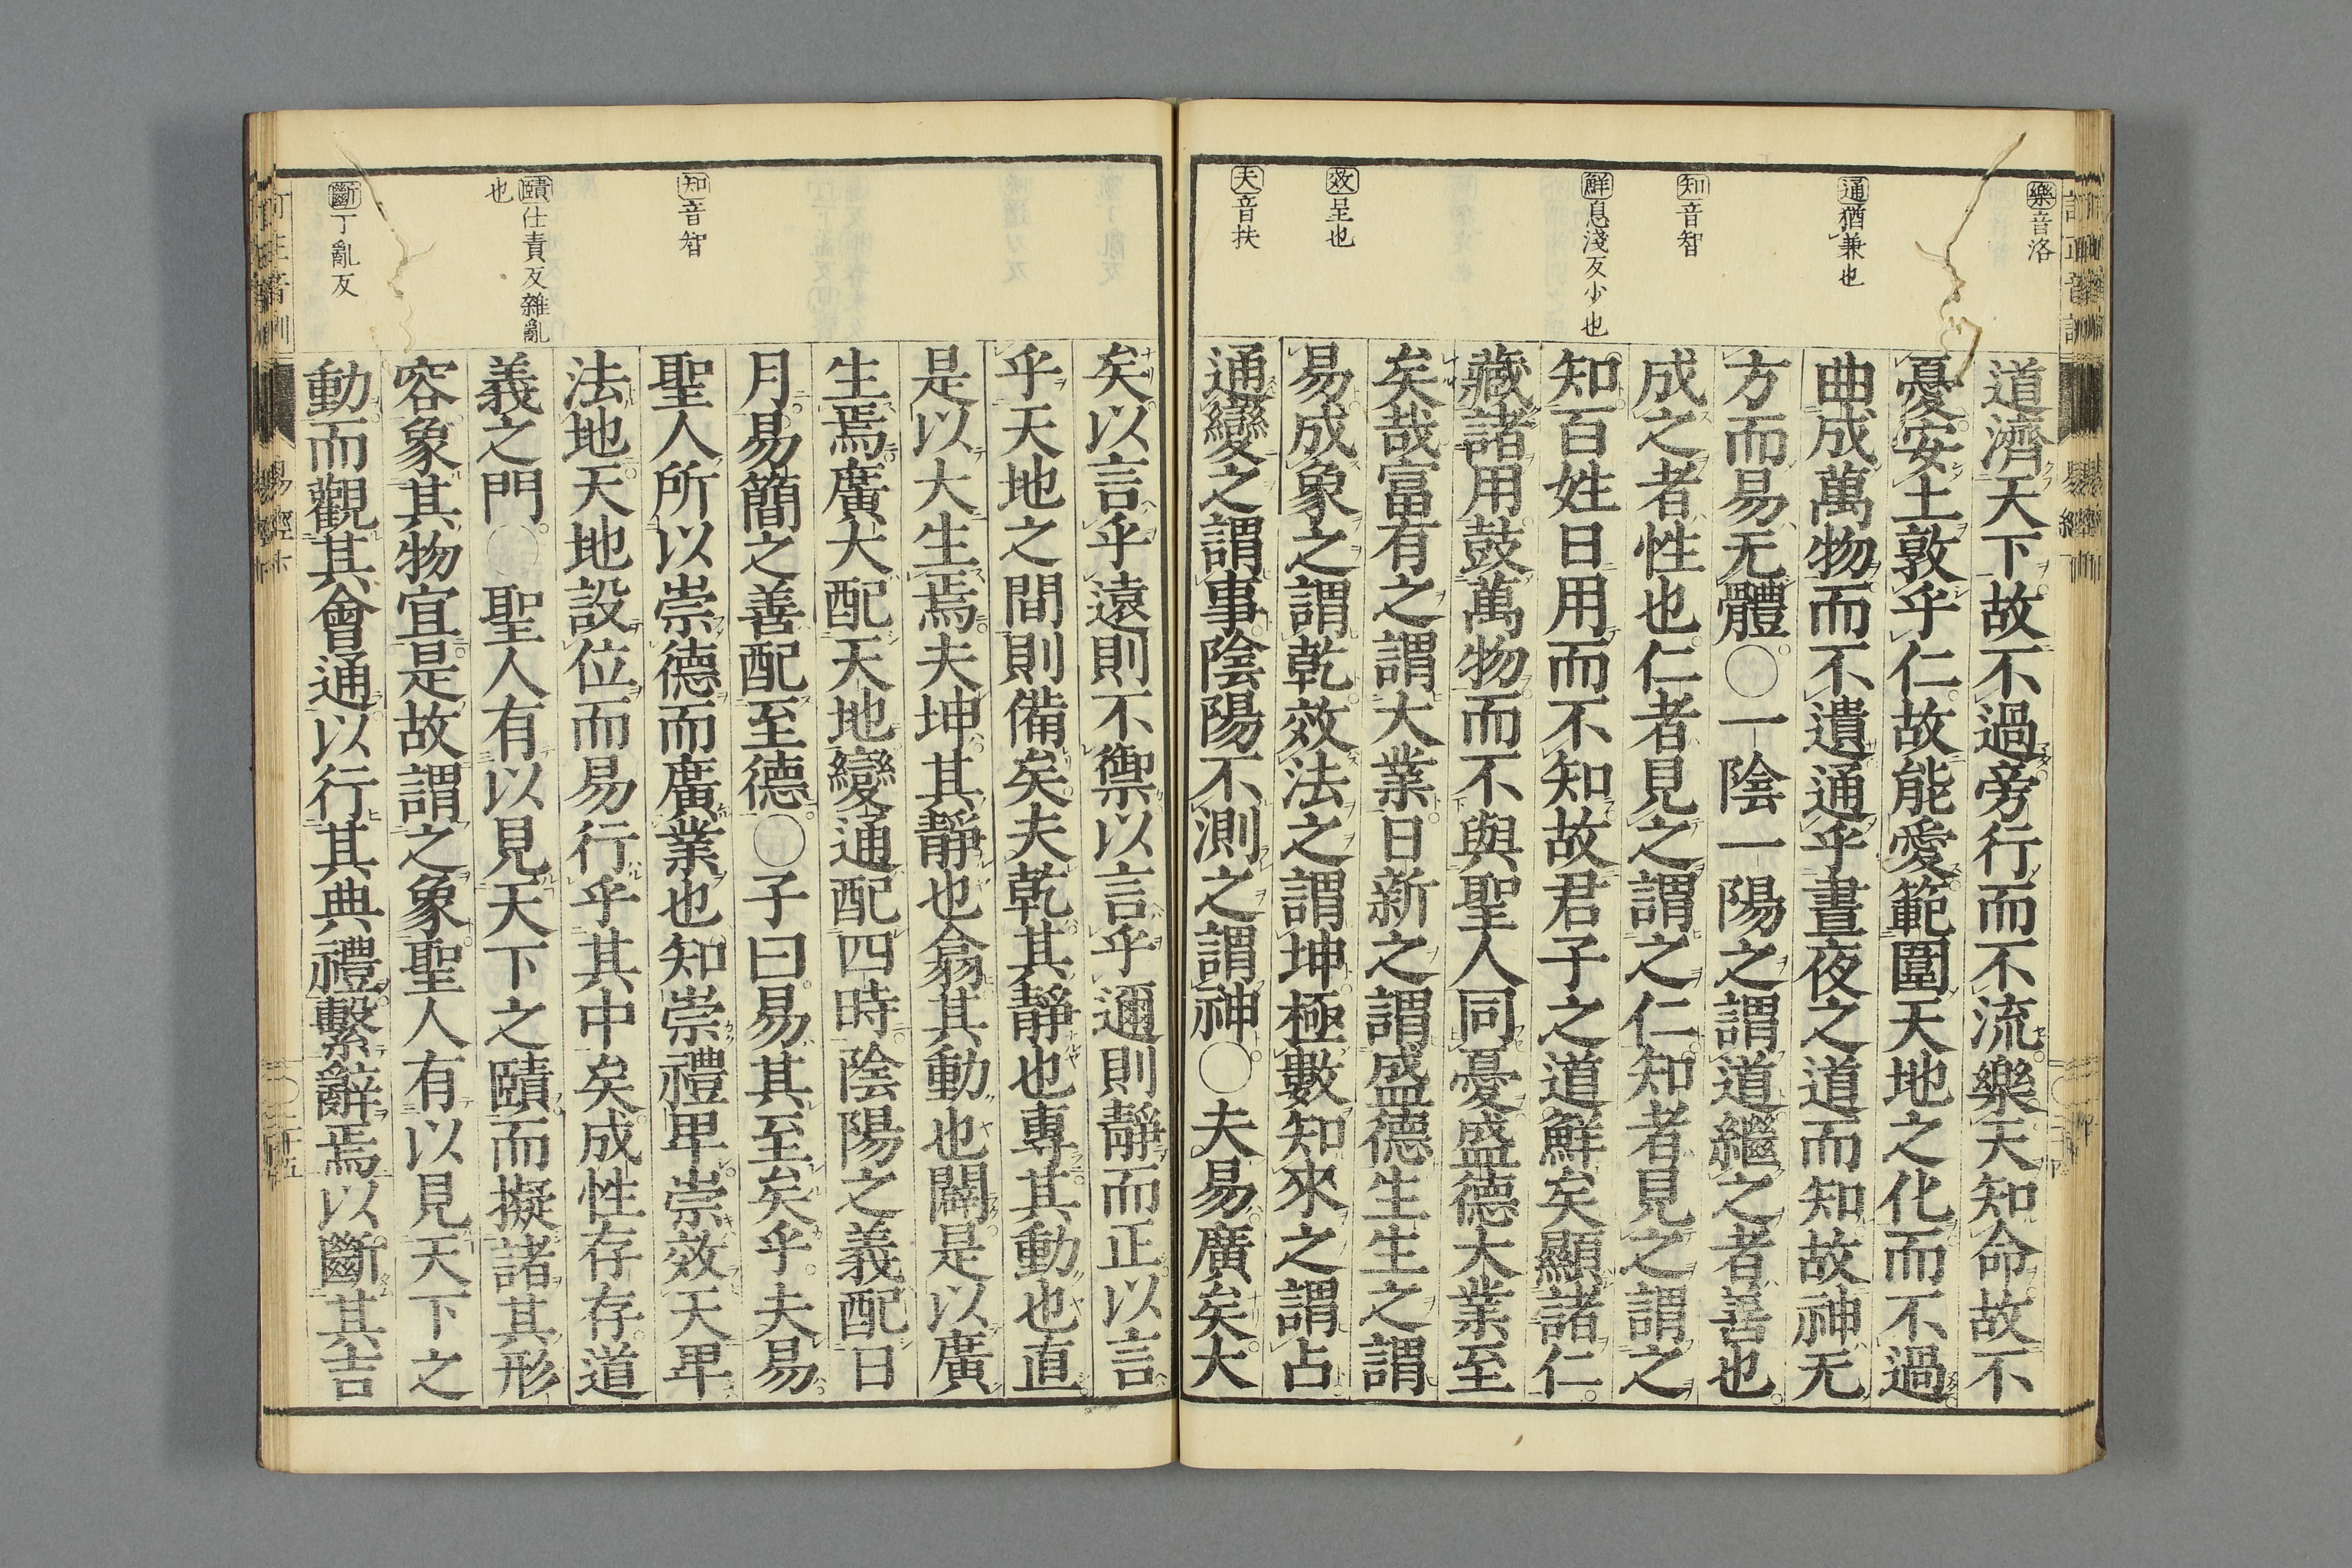 樂音洛
通猶兼也
知音智
鮮息淺反少也
效呈也
夫音扶
道濟天下故不過旁行而不流樂天知命故不
憂安土敦乎仁故能愛範圍天地之化而不過
曲成萬物而不遺通乎晝夜之道而知故神无
方而易无體○一陰一陽之謂道繼之者善也
成之者性也仁者見之謂之仁知者見之謂之
知百姓日用而不知故君子之道鮮矣顯諸仁
藏諸用鼓萬物而不與聖人同憂盛德大業至
矣哉富有之謂大業日新之謂盛德生生之謂
易成象之謂乾效法之謂坤極數知來之謂占
通變之謂事陰陽不測之謂神○夫易廣矣大
知音智
賾仕責反雜亂
也
斷丁亂反
矣以言乎遠則不禦以言乎邇則靜而正以言
乎天地之間則備矣夫乾其靜也專其動也直
是以大生焉夫坤其靜也翕其動也闢是以廣
生焉廣大配天地變通配四時陰陽之義配日
月易簡之善配至德○子曰易其至矣乎夫易
聖人所以崇德而廣業也知崇禮卑崇效天卑
法地天地設位而易行乎其中矣成性存存道
義之門○聖人有以見天下之賾而擬諸其形
容象其物宜是故謂之象聖人有以見天下之
動而觀其會通以行其典禮繫辭焉以斷其吉